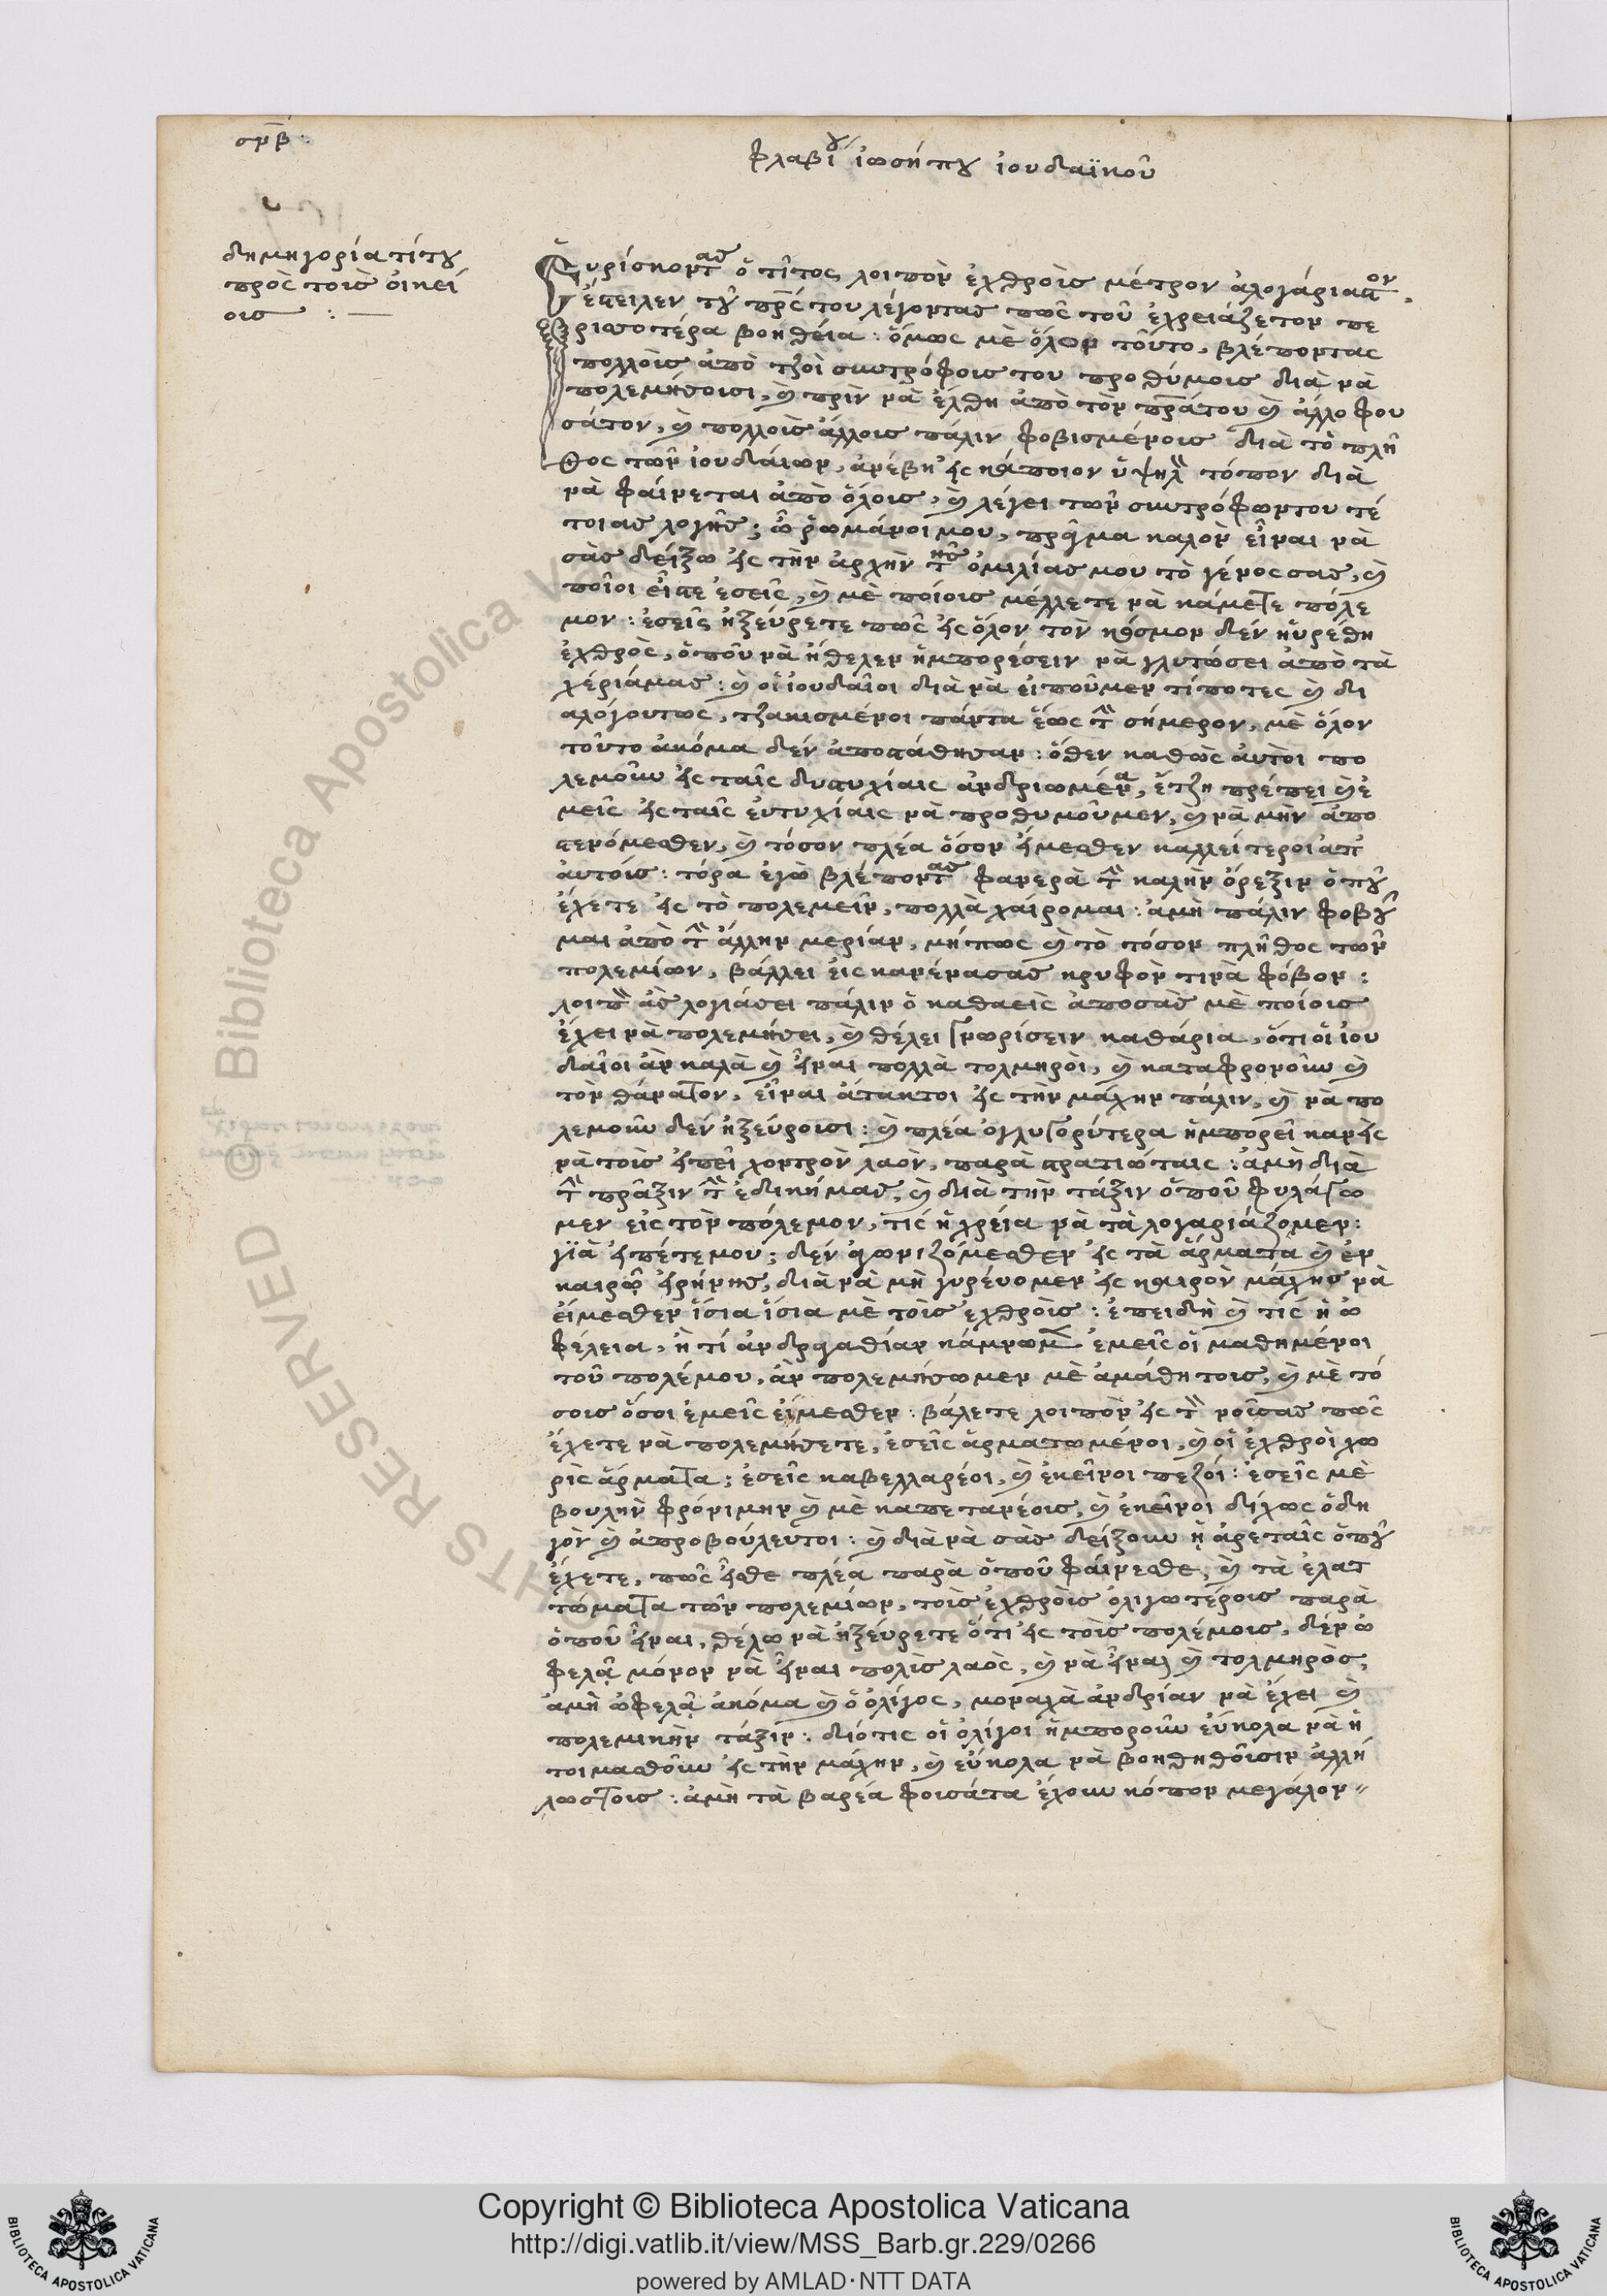 σνβ
φλαβίου ἰωσήπου ἰουδαϊκοῦ
δημηγορία τίτου
πρὸς τοὺς οἰκεί
ους :—
Εὑρίσκοντας ὁ τῖτος λοιπὸν ἐχθροὺς μέτρον ἀλογάριαστον,
ἔστειλεν τοῦ πρς του λέγοντας πῶς τοῦ ἐχρειάζετον πε
ρισσοτέρα βοηθεία: ὅμως μὲ ὅλον τοῦτο, βλέποντας
πολλοὺς ἀπὸ τζοὶ συντρόφους του προθύμους διὰ νὰ
πολεμήσουσι, καὶ πρὶν νὰ ἔλθη ἀπὸ τὸν πράτου καὶ ἄλλο φου
σάτον, καὶ πολλοὺς ἄλλους πάλιν φοβισμένους διὰ τὸ πλῆ
θος τῶν ἰουδαίων, ἀνέβη εἰς κάποιον ὑψηλὸν τόπον διὰ
νὰ φαίνεται ἀπὸ ὅλους, καὶ λέγει τῶν συντρόφωντου τέ
τοιας λογῆς; ὦ ῥωμάνοι μου, πρᾶγμα καλὸν εἶναι νὰ
σᾶς δείξω εἰς τὴν ἀρχὴν τῆς ὁμιλίας μου τὸ γένος σας, καὶ
ποῖοι εἶστε ἐσεῖς, καὶ μὲ ποίους μέλλετε νὰ κάμετε πόλε
μον: ἐσεῖς ἠξεύρετε πῶς εἰς ὅλον τὸν κόσμον δὲν ηὑρέθη
ἐχθρὸς, ὁποῦ νὰ ἤθελεν ἠμπορέσειν νὰ γλυτώσει ἀπὸ τὰ
χέριάμας: καὶ οἱ ἰουδαῖοι διὰ νὰ εἰποῦμεν τίποτες καὶ δι
αλόγουτως, τζακισμένοι πάντα ἕως τὴν σήμερον, μὲ ὅλον
τοῦτο ἀκόμα δὲν ἀποστάθησαν: ὅθεν καθὼς αὐτοὶ πο
λεμοῦν εἰς ταῖς δυστυχίαις ἀνδριωμένα, ἔτζη πρέπει καὶ ἐ
μεῖς εἰς ταῖς εὐτυχίαις νὰ προθυμοῦμεν, καὶ νὰ μὴν ἀπο
στενόμεσθεν, καὶ τόσον πλέα ὅσον εἴμεσθεν καλλείτεροι ἀπ
αὐτούς: τόρα ἐγὼ βλέποντας φανερὰ τὴν καλὴν ὄρεξιν ὁποῦ
ἔχετε εἰς τὸ πολεμεῖν, πολλὰ χαίρομαι: ἀμὴ πάλιν φοβοῦ
μαι ἀπὸ τὴν ἄλλην μερίαν, μήπως καὶ τὸ τόσον πλῆθος τῶν
πολεμίων, βάλλει εἰς κανένασας κρυφὸν τινὰ φόβον:
λοιπὸν ἂς λογιάσει πάλιν ὁ καθαεὶς ἀποσᾶς μὲ ποίους
ἔχει νὰ πολεμήσει, καὶ θέλει γνωρίσειν καθάρια, ὅτι οἱ ἰου
δαῖοι ἂν καλὰ καὶ εἶναι πολλὰ τολμηροὶ, καὶ καταφρονοῦν καὶ
τὸν θάνατον, εἶναι ἄτακτοι εἰς τὴν μάχην πάλιν, καὶ νὰ πο
λεμοῦν δὲν ἠξεύρουσι: καὶ πλέα ὀγλυγορύτερα ἠμπορεῖ κανεὶς
νὰ τοὺς εἰπεῖ χοντρὸν λαὸν, παρὰ στρατιώταις: ἀμὴ διὰ
τὴν πρᾶξιν τὴν ἐδικήμας, καὶ διὰ τὴν τάξιν ὁποῦ φυλάγω
μεν εἰς τὸν πόλεμον, τίς ἡ χρεία νὰ τὰ λογαριάζομεν:
γϊὰ εἰπέτεμου; δὲν γνωριζόμεσθεν εἰς τὰ ἄρματα καὶ ἐν
καιρῶ εἰρήνης, διὰ νὰ μὴ γυρέυομεν εἰς καιρὸν μάχης νὰ
εἴμεσθεν ἴσια ἴσια μὲ τοὺς ἐχθροὺς: ἐπειδὴ καὶ τίς ἡ ὠ
φέλεια, ἢ τί ἀνδραγαθίαν κάμνωμεν ἐμεῖς οἱ μαθημένοι
τοῦ πολέμου, ἂν πολεμήσωμεν μὲ ἀμάθητους, καὶ μὲ τό
σους ὅσοι ἐμεῖς εἴμεσθεν: βάλετε λοιπὸν εἰς τὸν νοῦσας πῶς
ἔχετε νὰ πολεμήσετε, ἐσεῖς ἀρματωμένοι, καὶ οἱ ἐχθροὶ χω
ρὶς ἄρματα; ἐσεῖς καβελλαρέοι, καὶ ἐκεῖνοι πεζοί: ἐσεῖς μὲ
βουλὴν φρόνιμην καὶ μὲ καπετανέους, καὶ ἐκεῖνοι δίχως ὁδη
γὸν καὶ ἀπροβούλευτοι: καὶ διὰ νὰ σᾶς δείξουν ἡ ἀρεταῖς ὁποῦ
ἔχετε, πῶς εἶσθε πλέα παρὰ ὁποῦ φαίνεσθε, καὶ τὰ ἐλατ
τώματα τῶν πολεμίων, τοὺς ἐχθροὺς ὀλιγωτέρους παρὰ
ὁποῦ εἶναι, θέλω νὰ ἠξεύρετε ὅτι εἰς τοὺς πολέμους, δὲν ὠ
φελᾷ μόνον νὰ εἶναι πολὺς λαὸς, καὶ νὰ εἶναι καὶ τολμηρὸς,
ἀμὴ ὠφελᾷ ἀκόμα καὶ ὁ ὀλίγος, μοναχὰ ἀνδρίαν νὰ ἔχει καὶ
πολεμικὴν τάξιν: διότις οἱ ὀλίγοι ἠμποροῦν εὔκολα νὰ ἡ
τοιμασθοῦν εἰς τὴν μάχην, καὶ εὔκολα νὰ βοηθηθοῦσιν ἀλλή
λωστους: ἀμὴ τὰ βαρέα φουσάτα ἔχουν κόπον μεγάλον
Copyright © Biblioteca Apostolica Vaticana
http://digi.vatlib.it/view/MSS_Barb.gr.229/0266
powered by AMLAD·NTT DATA
BIBLIOTECA APOSTOLICA VATICANA
BIBLIOTECA APOSTOLICA VATICANA
RIGHTS RESERVED © Biblioteca Apostolica Vaticana